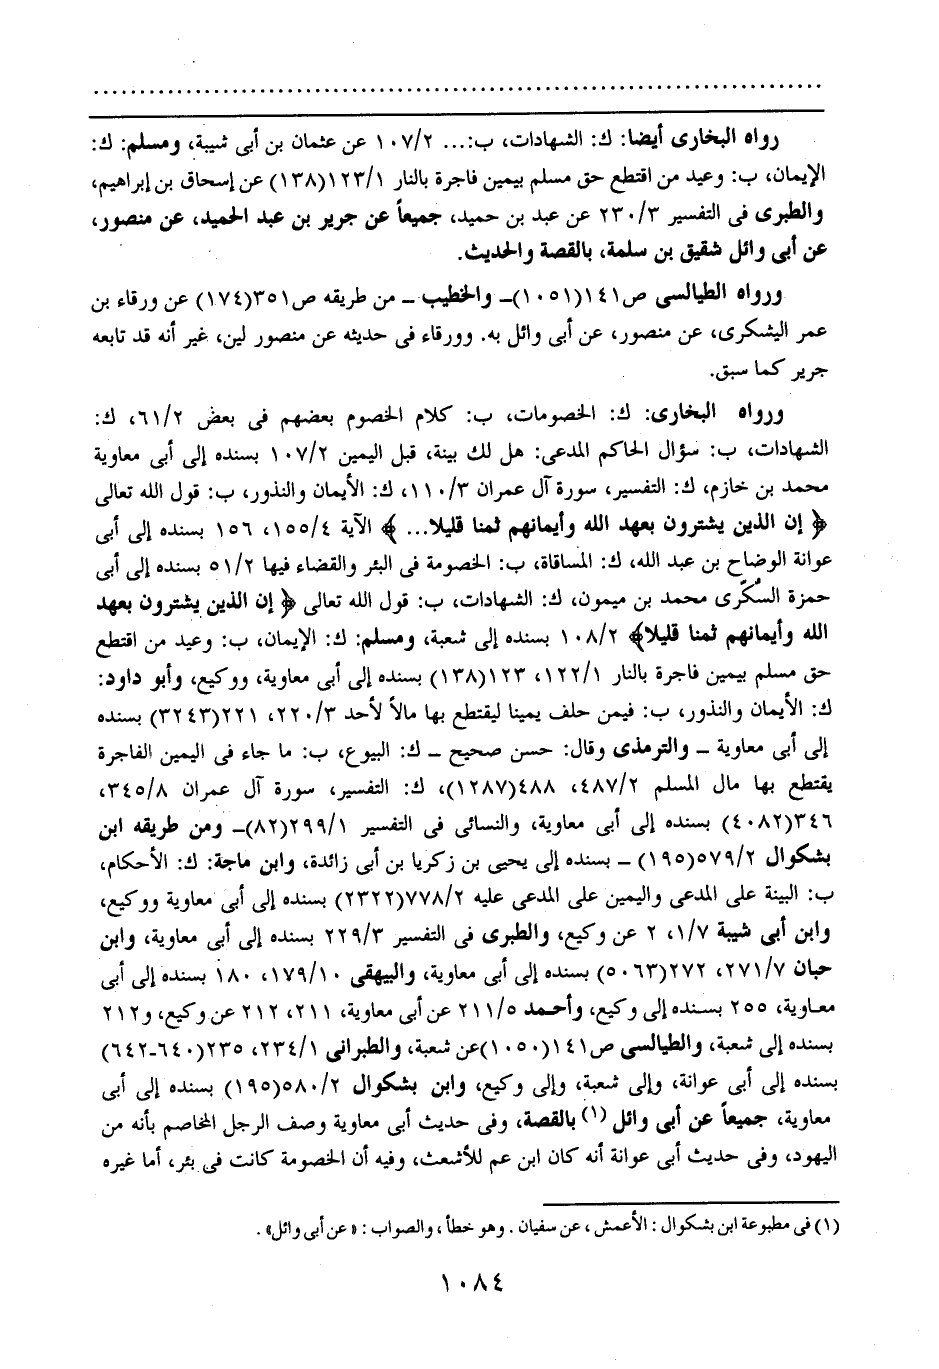 رواه البخارى أيضا: ك: الشهادات، ب:... ١٠٧/٢ عن عثمان بن أبى شيبة، ومسلم: ك:
الإيمان، ب: وعيد من اقتطع حق مسلم بيمين فاجرة بالنار ١٢٣/١(١٣٨) عن إسحاق بن إبراهيم،
والطبرى فى التفسير ٢٣٠/٣ عن عبد بن حميد، جميعاً عن جرير بن عبد الحميد، عن منصور،
عن أبى وائل شقيق بن سلمة، بالقصة والحديث.
ورواه الطيالسى ص١٤١(١٠٥١)ـ والخطيب ـ من طريقه ص٣٥١(١٧٤) عن ورقاء بن
عمر اليشكرى، عن منصور، عن أبى وائل به. وورقاء فى حديثه عن منصور لين، غير أنه قد تابعه
جرير كما سبق.
ورواه البخارى: ك: الخصومات، ب: كلام الخصوم بعضهم فى بعض ٦١/٢، ك:
الشهادات، ب: سؤال الحاكم المدعى: هل لك بينة، قبل اليمين ١٠٧/٢ بسنده إلى أبى معاوية
محمد بن خازم، ك: التفسير، سورة آل عمران ١١٠/٣، ك: الأيمان والنذور، ب: قول الله تعالى
﴿ إن الذين يشترون بعهد الله وأيمانهم ثمنا قليلا... ﴾ الآية ١٥٥/٤، ١٥٦ بسنده إلى أبى
عوانة الوضاح بن عبد الله، ك: المساقاة، ب: الخصومة فى البئر والقضاء فيها ٥١/٢ بسنده إلى أبى
حمزة السكّرى محمد بن ميمون، ك: الشهادات، ب: قول الله تعالى ﴿ إن الذين يشترون بعهد
الله وأيمانهم ثمنا قليلا﴾ ١٠٨/٢ بسنده إلى شعبة، ومسلم: ك: الإيمان، ب: وعيد من اقتطع
حق مسلم بيمين فاجرة بالنار ١٢٢/١، ١٢٣(١٣٨) بسنده إلى أبى معاوية، ووكيع، وأبو داود:
ك: الأيمان والنذور، ب: فيمن حلف يمينا ليقتطع بها مالاً لأحد ٢٢٠/٣، ٢٢١(٣٢٤٣) بسنده
إلى أبى معاوية ـ والترمذى وقال: حسن صحيح ـ ك: البيوع، ب: ما جاء فى اليمين الفاجرة
يقتطع بها مال المسلم ٤٨٧/٢، ٤٨٨(١٢٨٧)، ك: التفسير، سورة آل عمران ٣٤٥/٨،
٣٤٦(٤٠٨٢) بسنده إلى أبى معاوية، والنسائى فى التفسير ٢٩٩/١(٨٢)ـ ومن طريقه ابن
بشكوال ٥٧٩/٢(١٩٥) ـ بسنده إلى يحيى بن زكريا بن أبى زائدة، وابن ماجة: ك: الأحكام،
ب: البينة على المدعى واليمين على المدعى عليه ٧٧٨/٢(٢٣٢٢) بسنده إلى أبى معاوية ووكيع،
وابن أبى شيبة ١/٧، ٢ عن وكيع، والطبرى فى التفسير ٢٢٩/٣ بسنده إلى أبى معاوية، وابن
حبان ٢٧١/٧، ٢٧٢(٥٠٦٣) بسنده إلى أبى معاوية، والبيهقى ١٧٩/١٠، ١٨٠ بسنده إلى أبى
معاوية، ٢٥٥ بسنده إلى وكيع، وأحمد ٢١١/٥ عن أبى معاوية، ٢١١، ٢١٢ عن وكيع، و٢١٢
بسنده إلى شعبة، والطيالسى ص١٤١(١٠٥٠)عن شعبة، والطبرانى ٢٣٤/١، ٢٣٥(٦٤٠ـ٦٤٢)
بسنده إلى أبى عوانة، وإلى شعبة، وإلى وكيع، وابن بشكوال ٥٨٠/٢(١٩٥) بسنده إلى أبى
معاوية، جميعاً عن أبى وائل (١) بالقصة، وفى حديث أبى معاوية وصف الرجل المخاصم بأنه من
اليهود، وفى حديث أبى عوانة أنه كان ابن عم للأشعث، وفيه أن الخصومة كانت فى بئر، أما غيره
(١) فى مطبوعة ابن بشكوال : الأعمش ، عن سفيان . وهو خطأ ، والصواب : «عن أبى وائل» .
١٠٨٤